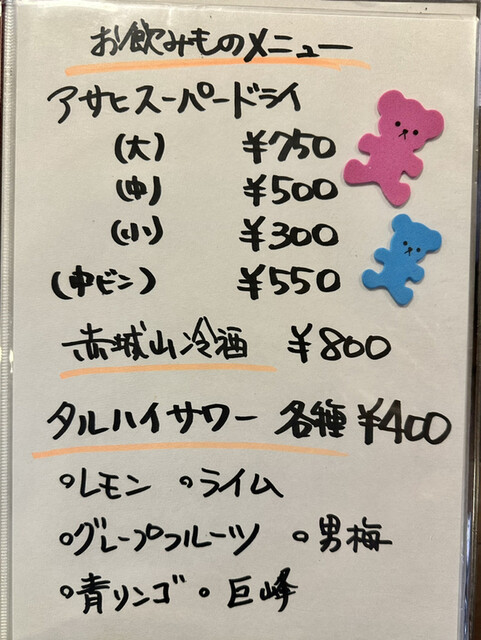 お飲みものメニュー
アサヒスーパードライ
(大) ¥750
(中) ¥500
(小) ¥300
(中ビン) ¥550
赤城山冷酒 ¥800
タルハイサワー 各種 ¥400
・レモン ・ライム
・グレープフルーツ ・男梅
・青リンゴ ・巨峰